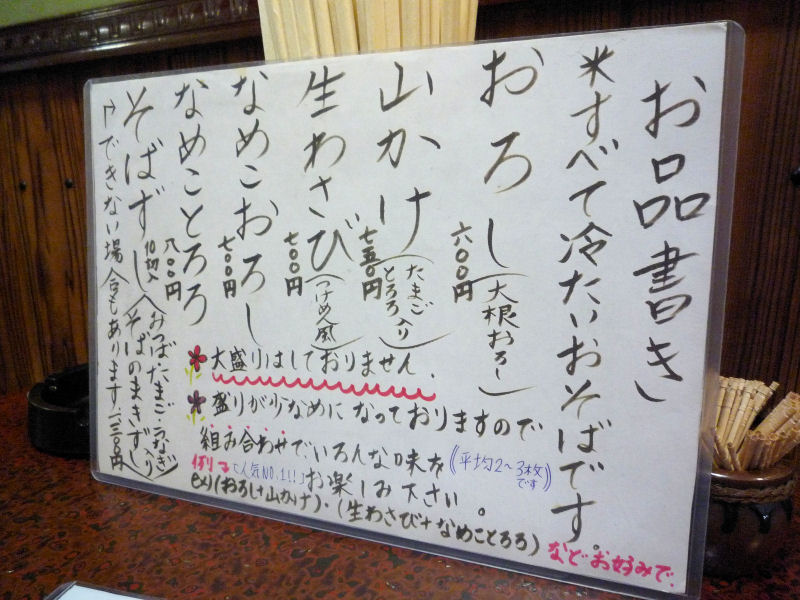 お品書き
*すべて冷たいおそばです。
おろし(大根おろし)
六〇〇円
山かけ(たまごとろろ入り)
七五〇円
生わさび(つけめん風)
七〇〇円
なめこおろし
七〇〇円
なめことろろ
八〇〇円
そばずし(みつば、たまご、うなぎ入り そばのまきずし)
10切入
一三〇〇円
↑できない場合もあります
大盛りはしておりません。
盛りが少なめになっておりますので
組み合わせでいろんな味を((平均2〜3枚です))
お楽しみ下さい。
例り→「人気NO.1!!」
ex)(おろし+山かけ)・(生わさび+なめことろろ)
などお好みで。